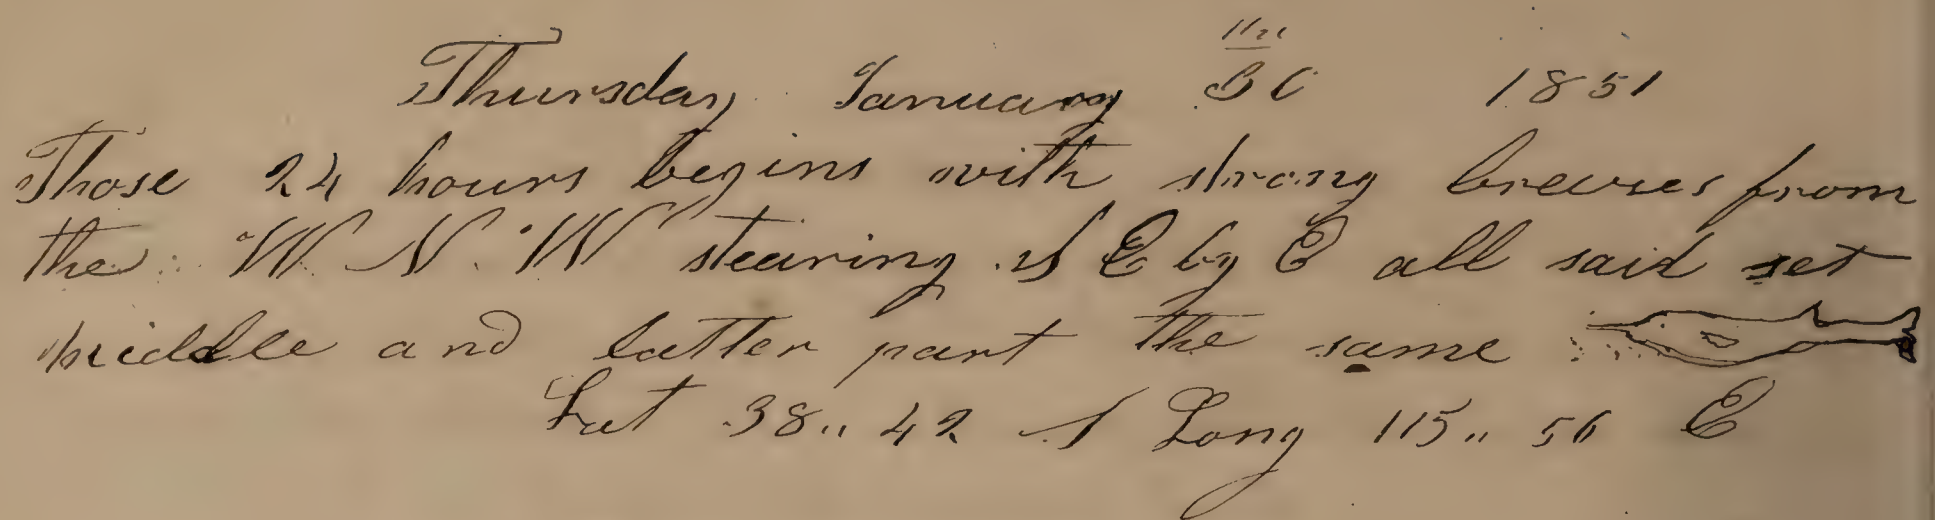 Thursday January 30 1851
Those 24 hours begins with strong breuses from
the W. N. W stearing S E by E all said set
middle and latter part the same
Lat 38,, 42 S Long 115,, 56 E